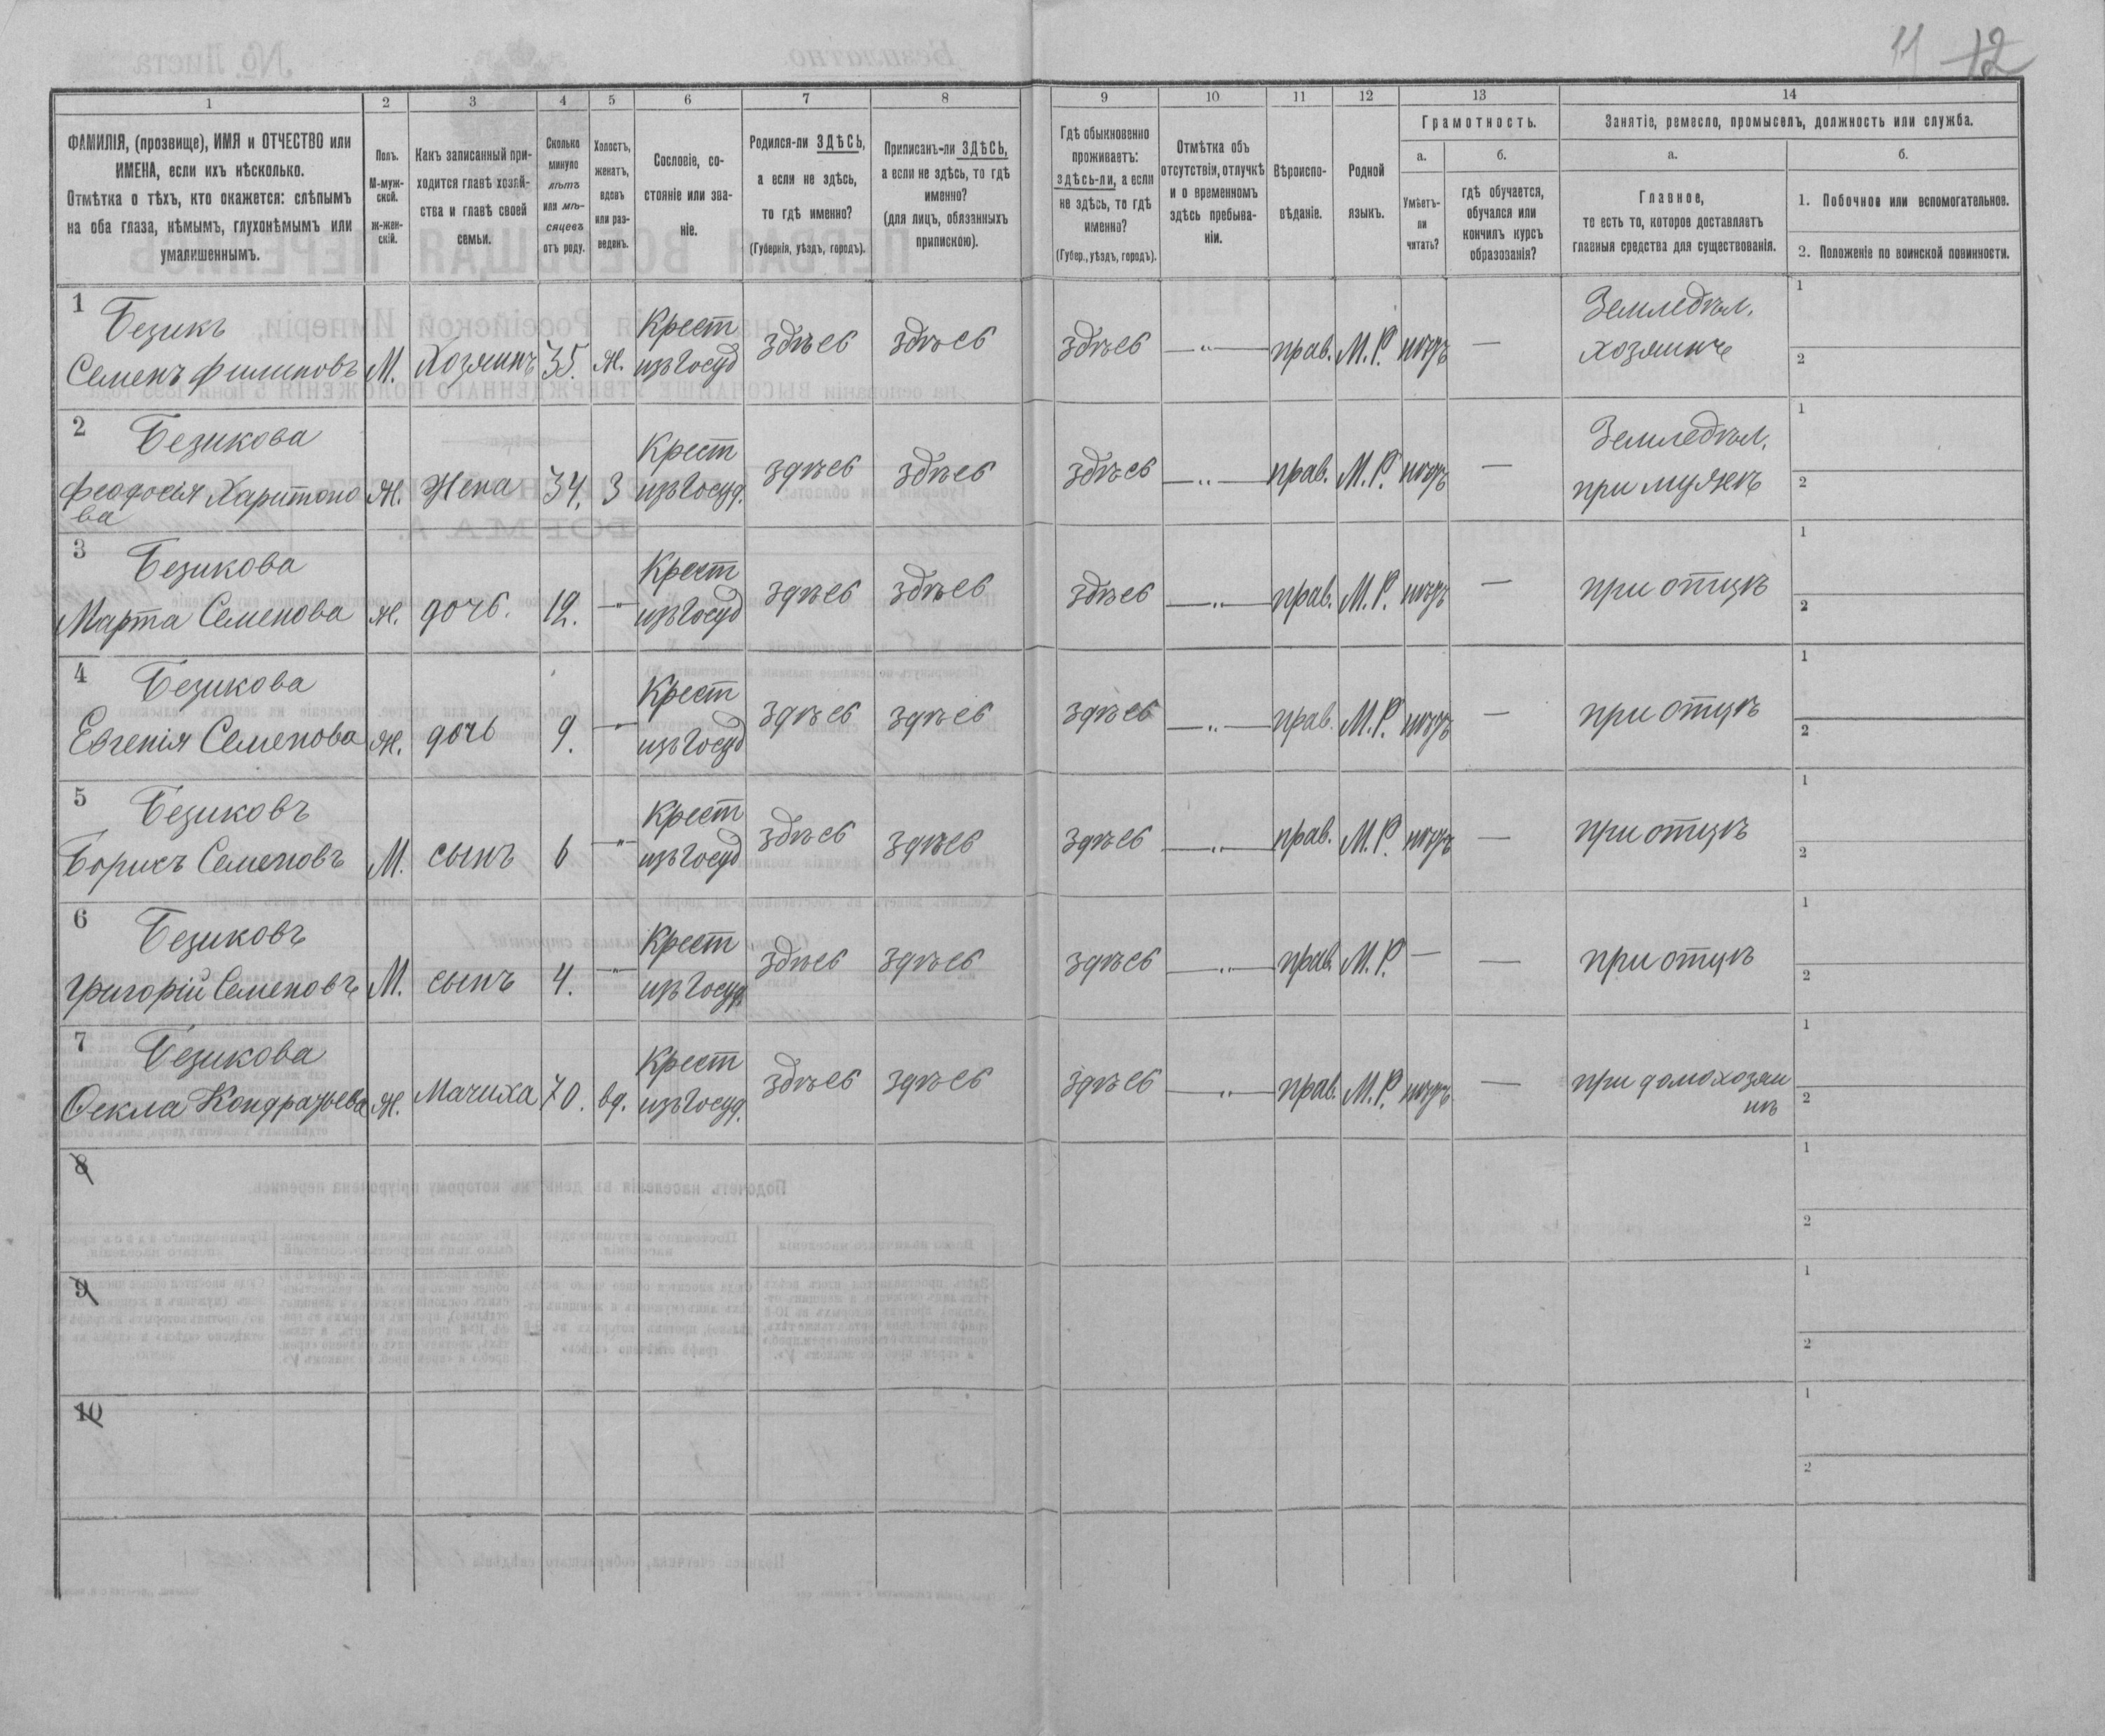 11 12
1 2 3 4 5 6 7 8 9 10 11 12 13 14
ФАМИЛІЯ, (прозвище), ИМЯ и ОТЧЕСТВО или
ИМЕНА, если ихъ нѣсколько.
Отмѣтка о тѣхъ, кто окажется: слѣпымъ
на оба глаза, нѣмымъ, глухонѣмымъ или
умалишеннымъ.
Полъ.
М-муж-
ской.
Ж-жен-
скій.
Какъ записанный при-
ходится главѣ хозяй-
ства и главѣ своей
семьи.
Сколько
минуло
лѣтъ
или мѣ-
сяцевъ
отъ роду.
Холостъ,
женатъ,
вдовъ
или раз-
веденъ.
Сословіе, со-
стояніе или зва-
ніе.
Родился-ли ЗДѢСЬ,
а если не здѣсь,
то гдѣ именно?
(Губернія, уѣздъ, городъ).
Приписанъ-ли ЗДѢСЬ,
а если не здѣсь, то гдѣ
именно?
(для лицъ, обязанныхъ
припискою).
Гдѣ обыкновенно
проживаетъ:
здѣсь-ли, а если
не здѣсь, то гдѣ
именно?
(Губер., уѣздъ, городъ).
Отмѣтка объ
отсутствіи, отлучкѣ
и о временномъ
здѣсь пребыва-
ніи.
Вѣроиспо-
вѣданіе.
Родной
языкъ.
Грамотность.
а.
Умѣетъ-
ли
читать?
б.
гдѣ обучается,
обучался или
кончилъ курсъ
образованія?
Занятіе, ремесло, промыселъ, должность или служба.
а.
Главное,
то есть то, которое доставляетъ
главныя средства для существованія.
б.
1. Побочное или вспомогательное.
2. Положеніе по воинской повинности.
1 Безикъ Крест Земледѣл. 1
Семенъ Филиповъ М. Хозяинъ 35. Ж. изъ Госуд здѣсь здѣсь здѣсь —"— прав. М.Р. нѣтъ — хозяинъ 2
2 Безикова Крест Земледѣл. 1
Феодосія Харитоно М. Жена 34. З изъ Госуд. здѣсь здѣсь здѣсь —"— прав. М.Р. нѣтъ — при мужѣ 2
ва
3 Безикова Крест 1
Марта Семенова Ж. дочь. 12. —"— изъ Госуд здѣсь здѣсь здѣсь —"— прав. М.Р. нѣтъ — при отцѣ 2
4 Безикова Крест 1
Евгенія Семенова Ж. дочь 9. —"— изъ Госуд здѣсь здѣсь здѣсь —"— прав. М.Р. нѣтъ — при отцѣ 2
5 Безиковъ Крест 1
Борисъ Семеновъ М. сынъ 6 —"— изъ Госуд здѣсь здѣсь здѣсь —"— прав. М.Р. нѣтъ — при отцѣ 2
6 Безиковъ Крест 1
Григорій Семеновъ М. сынъ 4. —"— изъ Госуд. здѣсь здѣсь здѣсь —"— прав. М.Р. — — при отцѣ 2
7 Безикова Крест 1
Ѳекла Кондратьева Ж. Мачиха 70. вд. изъ Госуд. здѣсь здѣсь здѣсь —"— прав. М.Р. нѣтъ — при домохозяи 2
нѣ
8 1
2
9 1
2
10 1
2